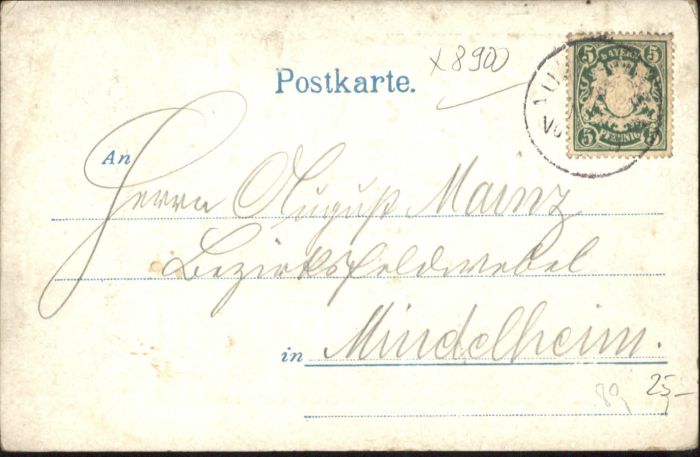 x 8900
Postkarte.
5 BAYERN 5
5 PFENNIG 5
An
Herrn August Mainz
Bezirksfeldwebel
in Mindelheim.
25.-